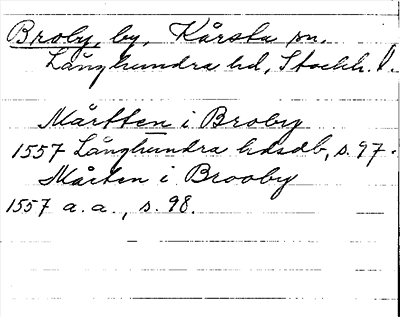 Broby, by, Kårsta sn.
Långhundra hd, Stockh. l.
Mårtten i Broby
1557 Långhundra hdsdb, s. 97.
Mårten i Brooby
1557 a. a., s. 98.